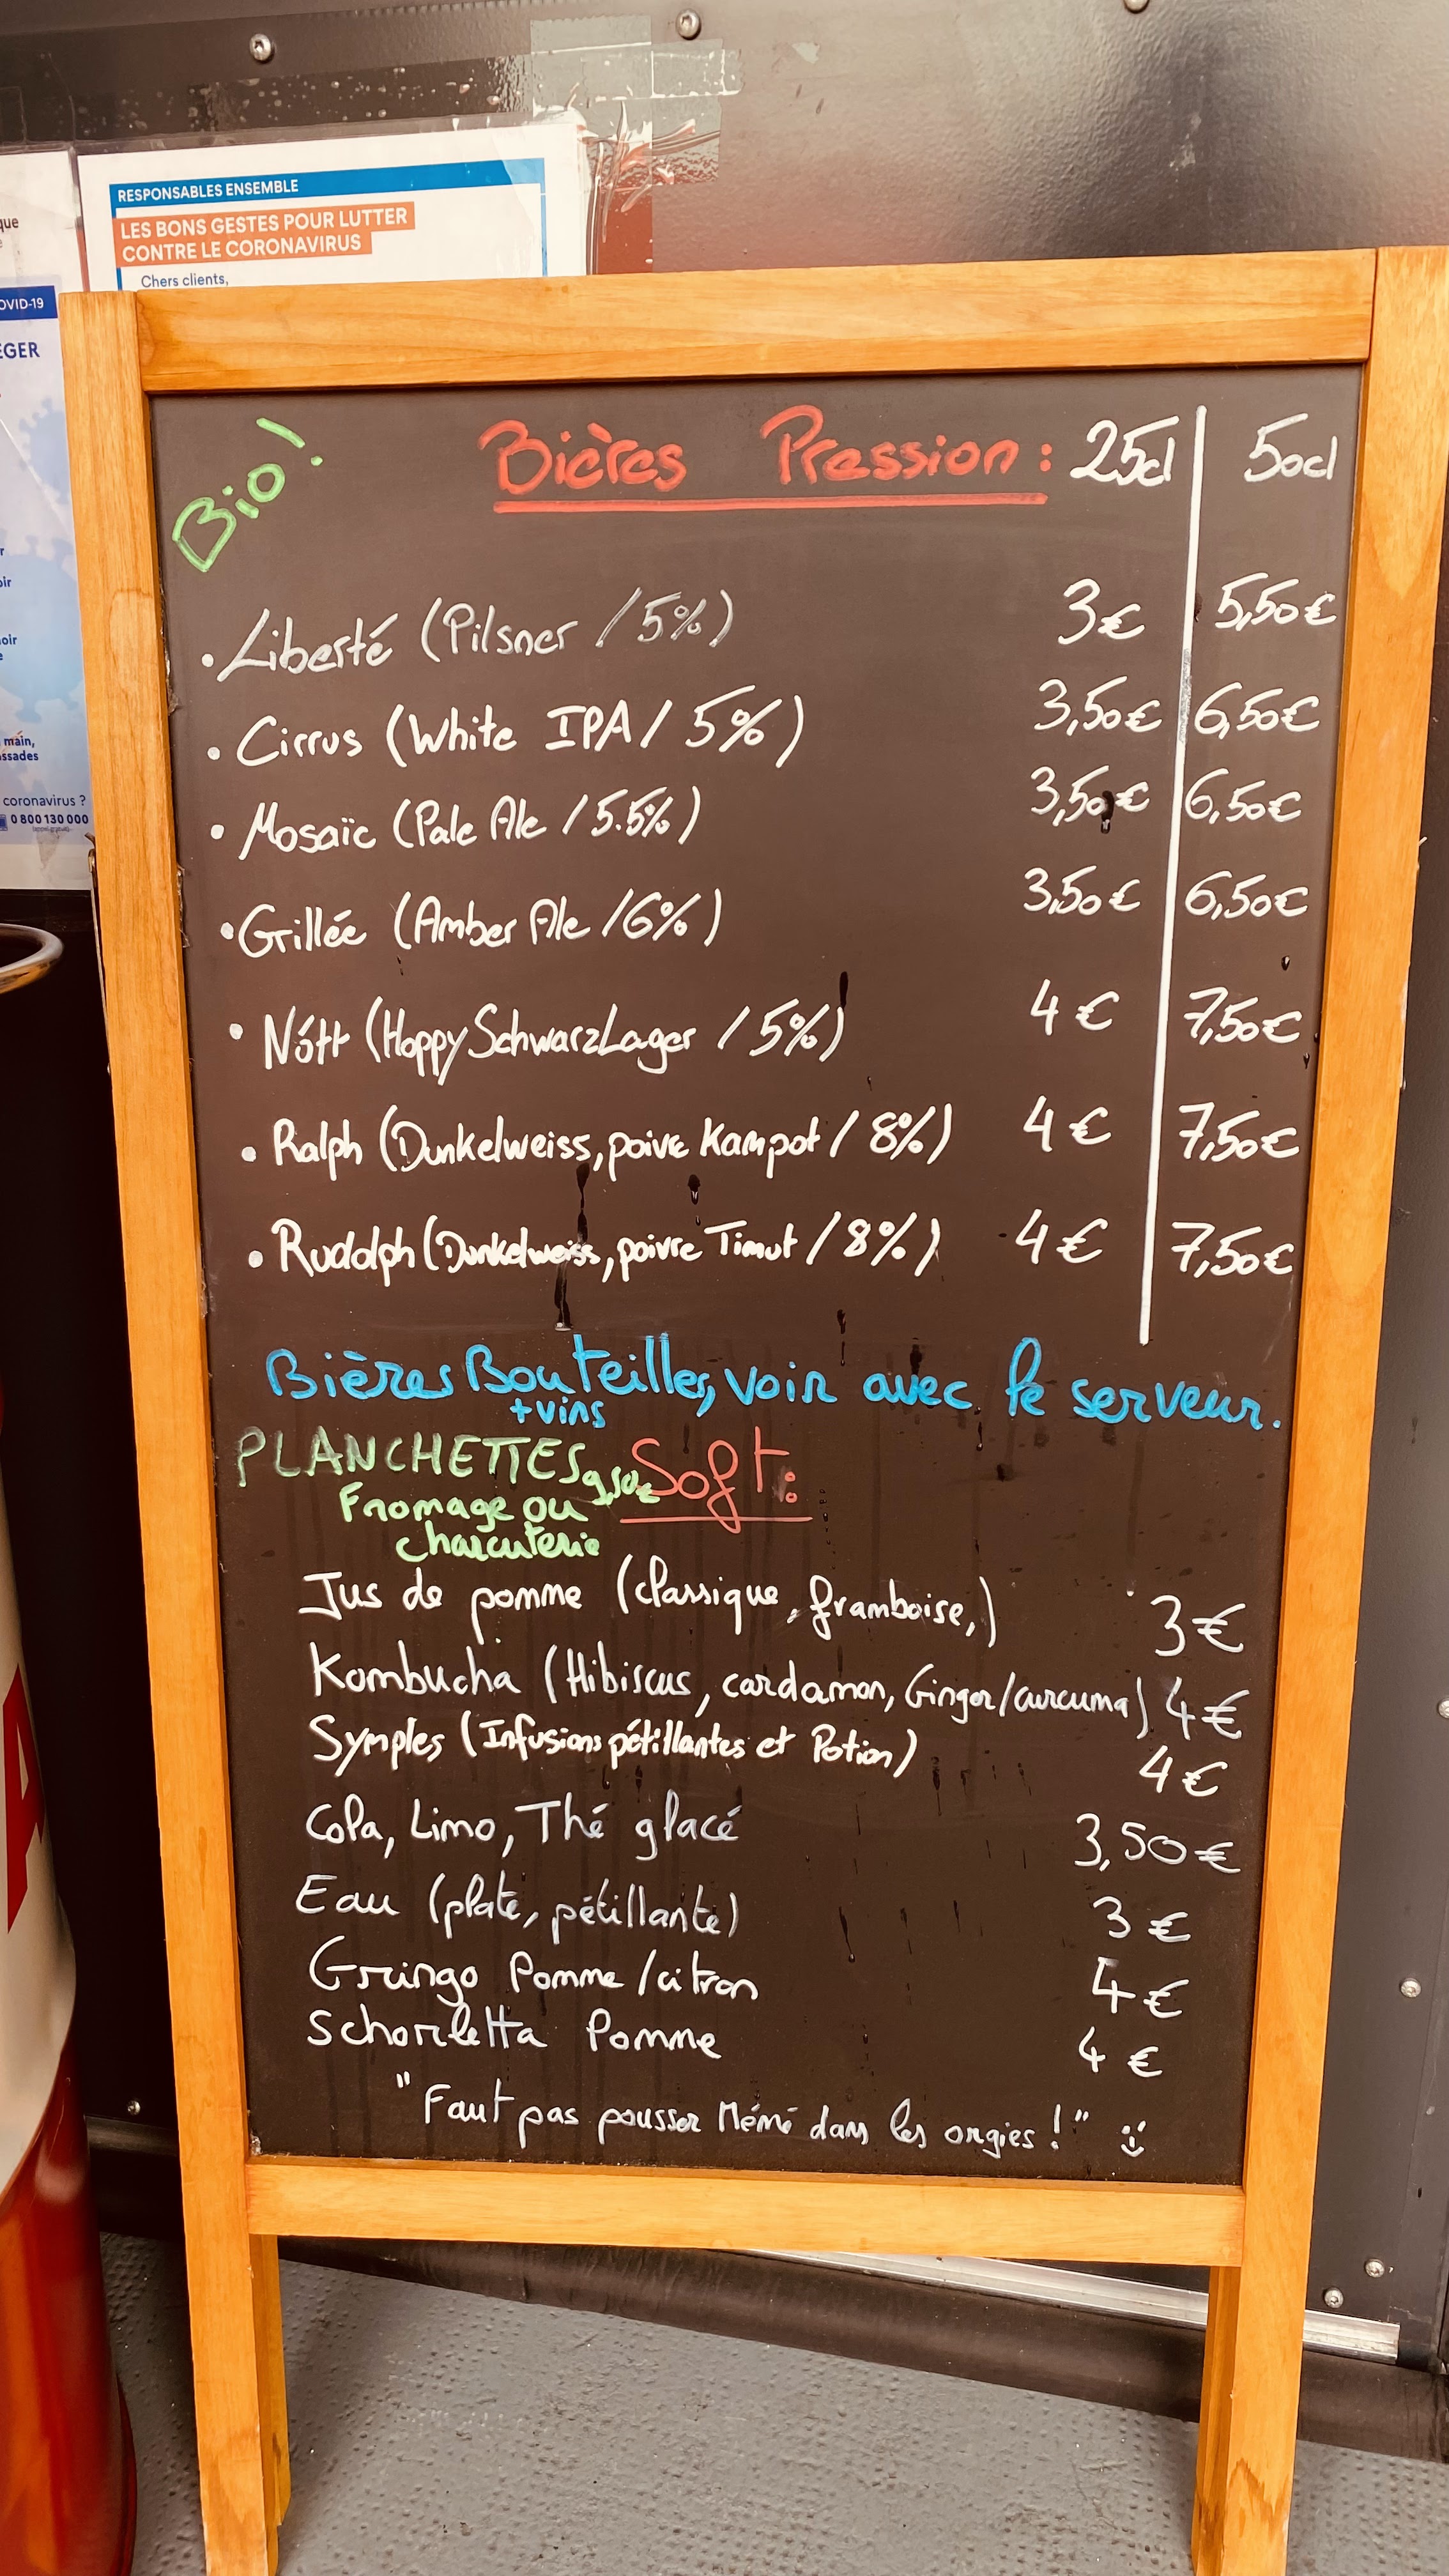 que
RESPONSABLES ENSEMBLE
LES BONS GESTES POUR LUTTER
CONTRE LE CORONAVIRUS
Chers clients,
OVID-19
EGER
oir
oir
main,
ssades
coronavirus ?
0 800 130 000
Bio!
Bières Pression : 25cl 50cl
• Liberté (Pilsner / 5%) 3€ 5,50€
• Cirrus (White IPA / 5%) 3,50€ 6,50€
• Mosaïc (Pale Ale / 5.5%) 3,50€ 6,50€
• Grillée (Amber Ale / 6%) 3,50€ 6,50€
• Nótt (Hoppy SchwarzLager / 5%) 4€ 7,50€
• Ralph (Dunkelweiss, poivre Kampot / 8%) 4€ 7,50€
• Rudolph (Dunkelweiss, poivre Timut / 8%) 4€ 7,50€
Bières Bouteilles, voir avec le serveur.
+ vins
PLANCHETTES 9,50€
Fromage ou
charcuterie
Soft:
Jus de pomme (classique, framboise,) 3€
Kombucha (Hibiscus, cardamon, Ginger/curcuma) 4€
Symples (Infusions pétillantes et Potion) 4€
Cola, Limo, Thé glacé 3,50€
Eau (plate, pétillante) 3€
Gringo Pomme/citron 4€
Schorletta Pomme 4€
"Faut pas pousser Mémé dans les orgies !"